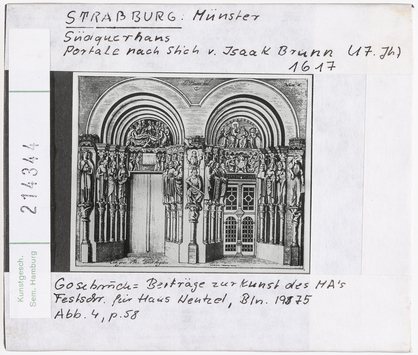 STRAßBURG: Münster
Südquerhaus
Portale nach Stich v. Isaak Brunn (17. Jh)
1617
214344
Kunstgesch.
Sem. Hamburg
Gosebruch = Beiträge zur Kunst des MA's
Festschr. für Hans Wentzel, Bln. 1975
Abb. 4, p. 58